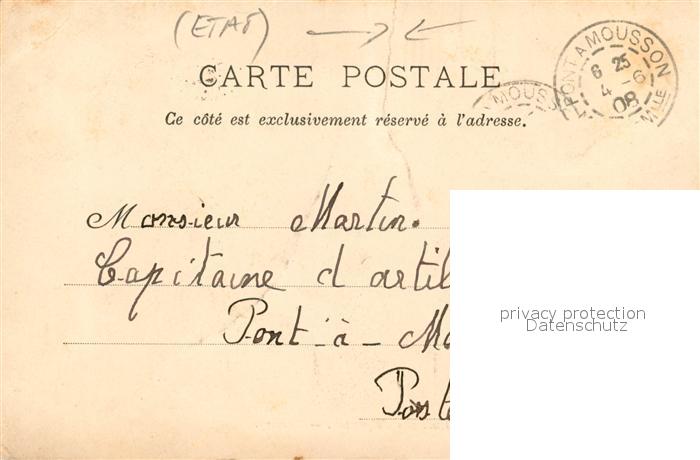 (ETAT)
CARTE POSTALE
Ce côté est exclusivement réservé à l'adresse.
PONT A MOUSSON
6 25
4 - 6
08
MOUSS
Monsieur Martin.
Capitaine d artil
Pont-à-Mo
Poste
privacy protection
Datenschutz